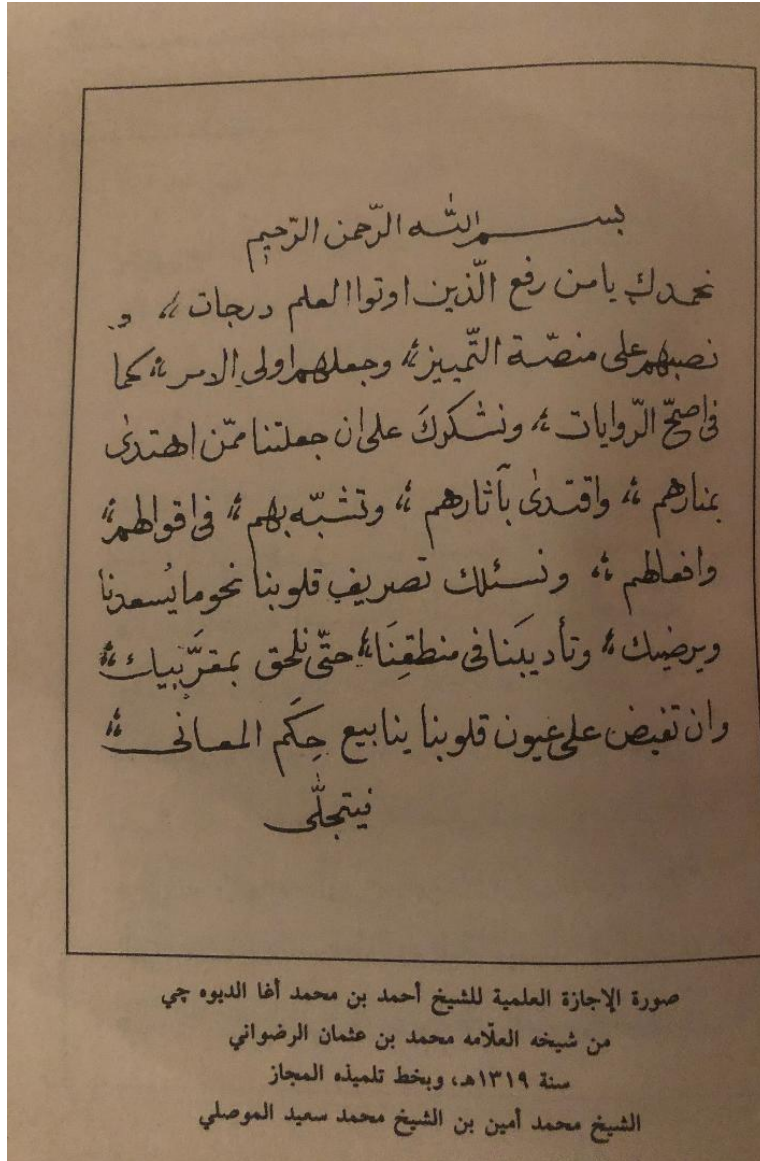 بسم الله الرّحمن الرّحيم
نحمدك يا من رفع الّذين اوتوا العلم درجات ؛ و
نصبهم على منصّة التّمييز ؛ وجعلهم اولى الامر ؛ كما
فى اصحّ الرّوايات ؛ ونشكركَ على ان جعلتنا ممّن اهتدىٰ
بمنارهم ؛ واقتدىٰ بآثارهم ؛ وتشبّه بهم ؛ فى اقوالهم ؛
وافعالهم ؛ ونسئلك تصريف قلوبنا نحو ما يُسعدنا
ويرضيك ؛ وتأديبَنا فى منطقِنَا ؛ حتّى نلحق بمقرَّبيك ؛
وان تفيض على عيون قلوبنا ينابيع حِكَم المعانى ؛
فيتجلّى
صورة الإجازة العلمية للشيخ أحمد بن محمد أغا الديوه جي
من شيخه العلّامه محمد بن عثمان الرضواني
سنة ١٣١٩هـ، وبخط تلميذه المجاز
الشيخ محمد أمين بن الشيخ محمد سعيد الموصلي